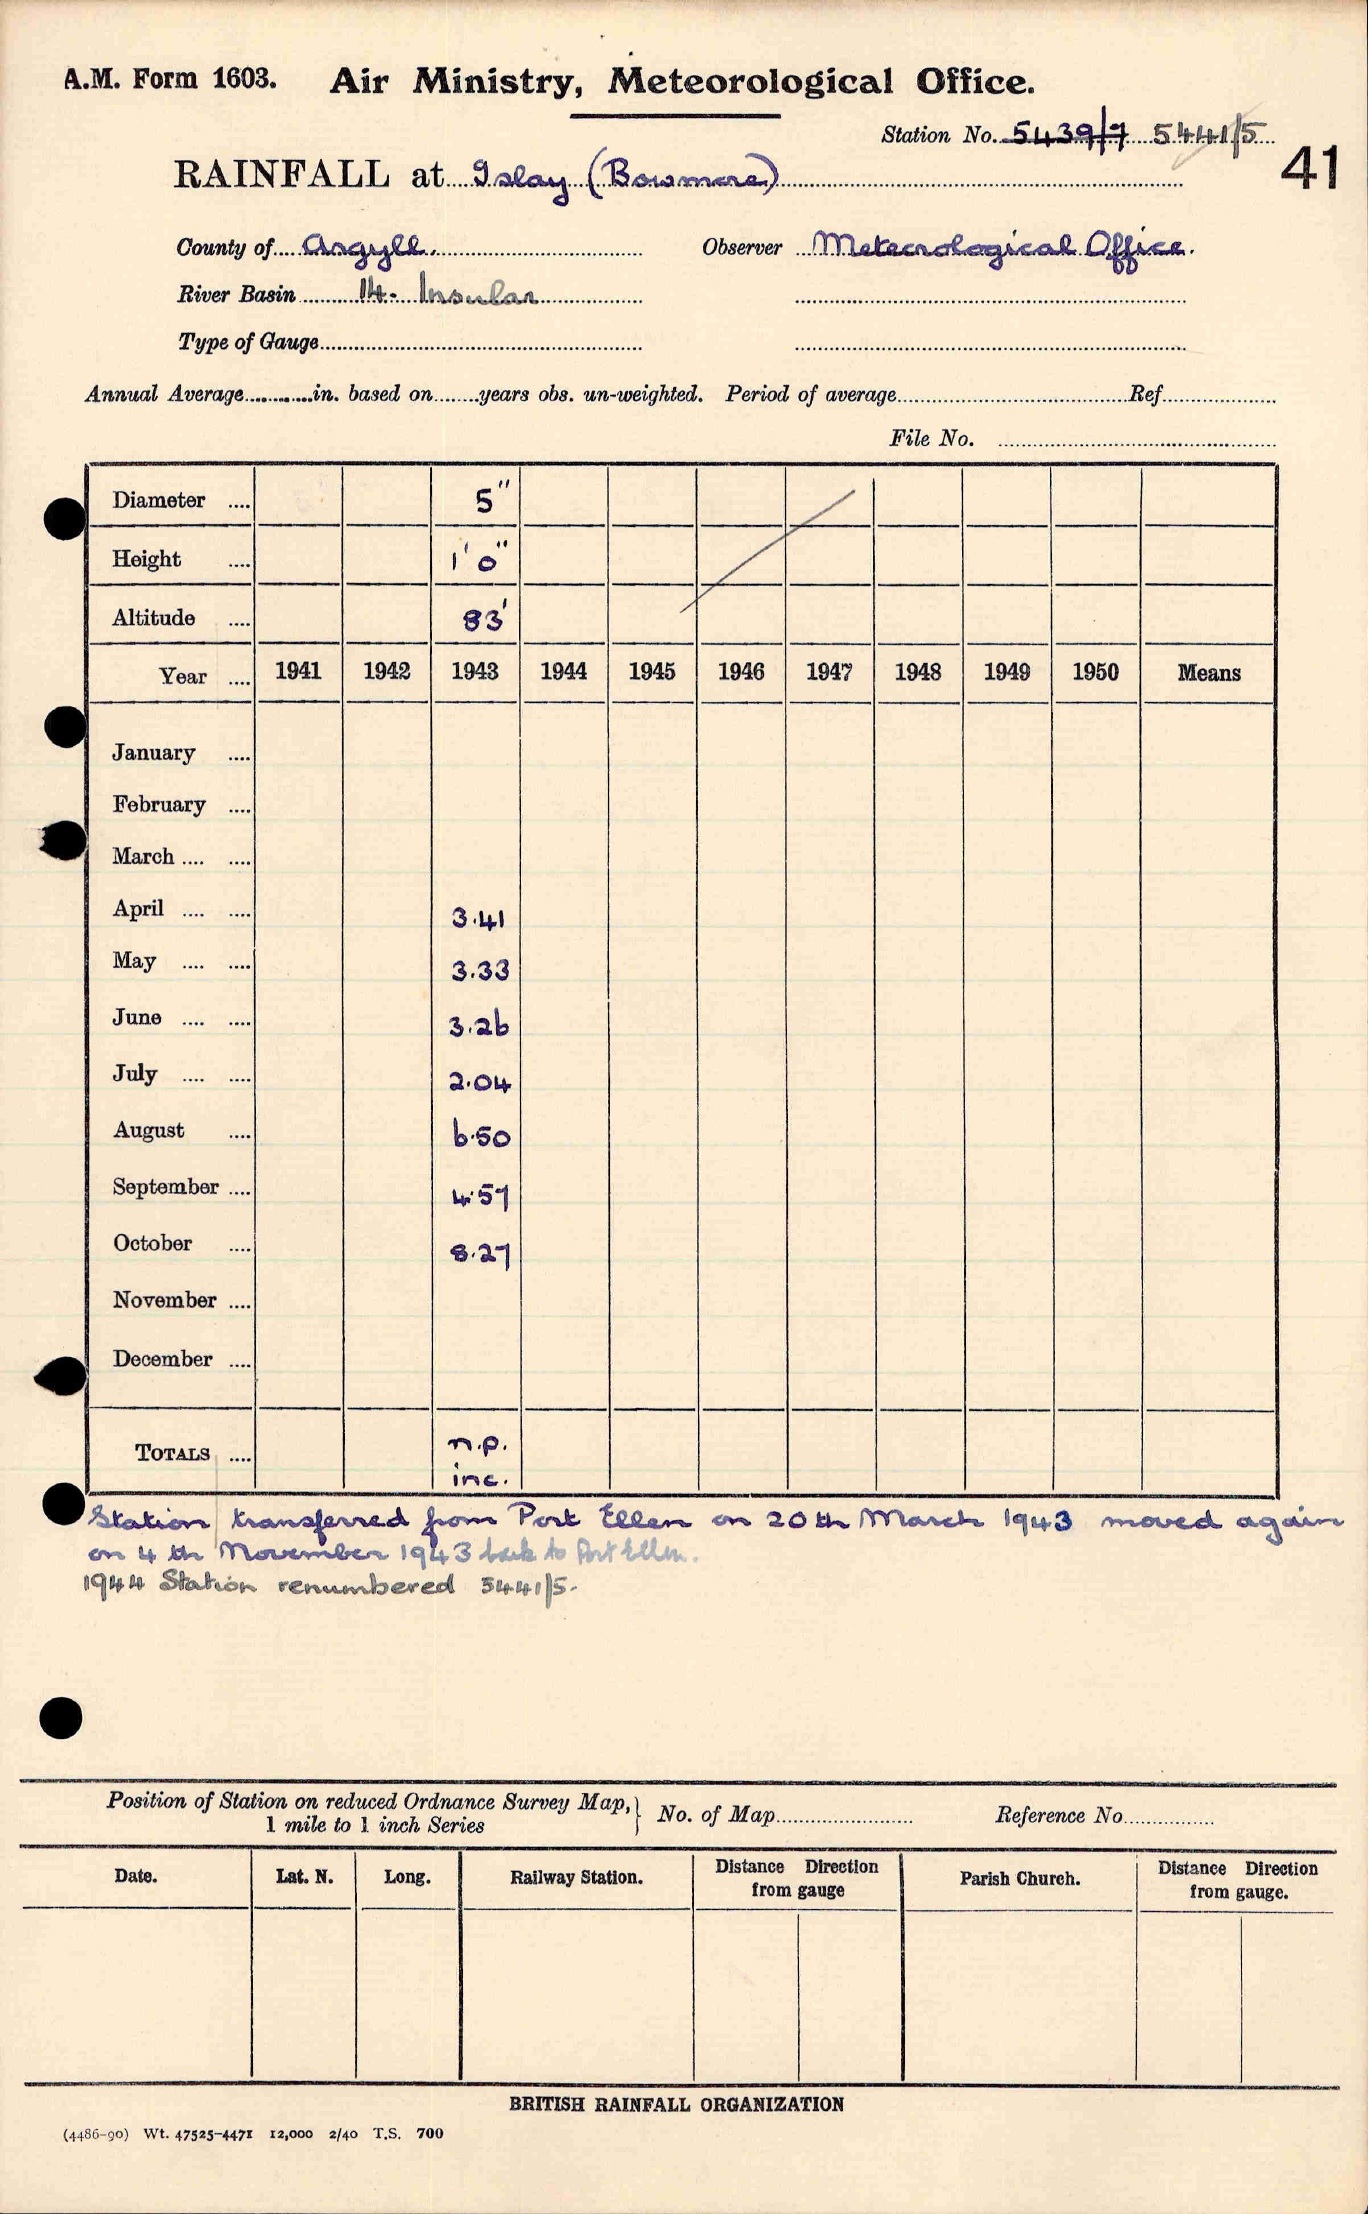 A.M. Form 1603. Air Ministry, Meteorological Office.
Station No. 5439/7 5441/5
41
RAINFALL at Islay (Bowmore)
County of Argyll. Observer Meteorological Office.
River Basin 14. Insular
Type of Gauge
Annual Average in. based on years obs. un-weighted. Period of average Ref
File No.
Diameter 5"
Height 1' 0"
Altitude 83'
Year 1941 1942 1943 1944 1945 1946 1947 1948 1949 1950 Means
January
February
March
April 3.41
May 3.33
June 3.26
July 2.04
August 6.50
September 4.57
October 8.27
November
December
TOTALS n.p.
inc.
Station transferred from Port Ellen on 20th March 1943 moved again
on 4th November 1943 back to Port Ellen.
1944 Station renumbered 5441/5.
Position of Station on reduced Ordnance Survey Map, } No. of Map Reference No.
1 mile to 1 inch Series
Date. Lat. N. Long. Railway Station. Distance Direction Parish Church. Distance Direction
from gauge from gauge.
BRITISH RAINFALL ORGANIZATION
(4486-90) Wt. 47525-4471 12,000 2/40 T.S. 700